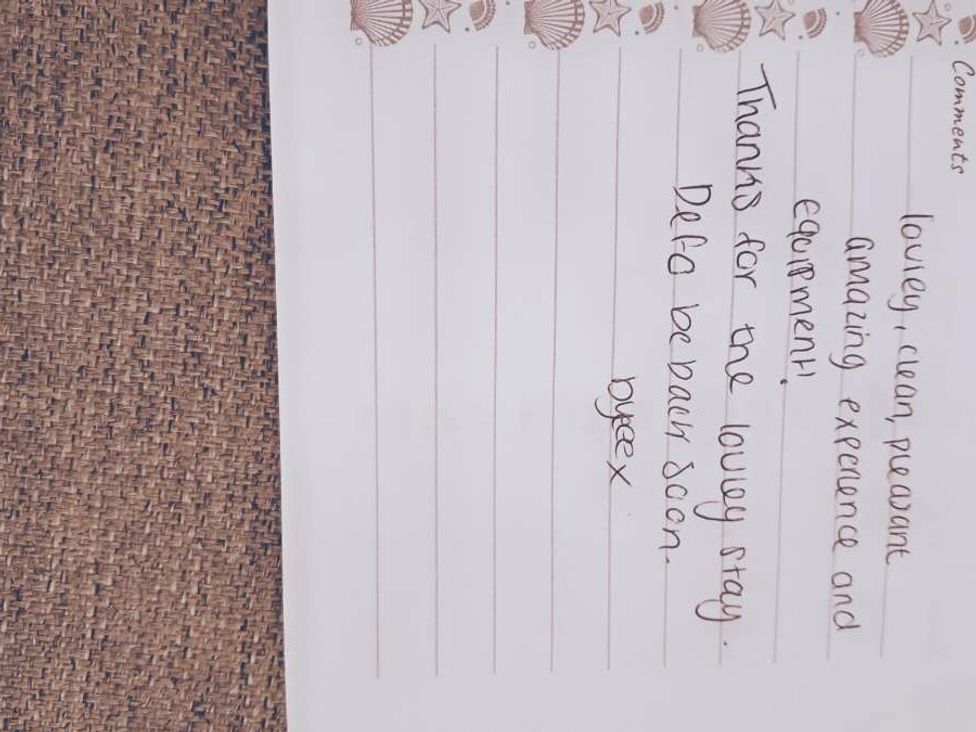 Comments
lovley, clean, pleasant
amazing experience and
equipment!
Thanks for the lovley stay.
Defo be back soon.
byeee x